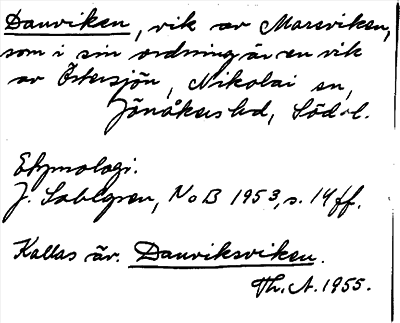 Danviken, vik av Marsviken,
som i sin ordning är en vik
av Östersjön, Nikolai sn,
Jönåkers hd, Söd-l.
Etymologi.
J. Sahlgren, NoB 1953, s. 14 ff.
Kallas äv. Danviksviken.
Th. A. 1955.